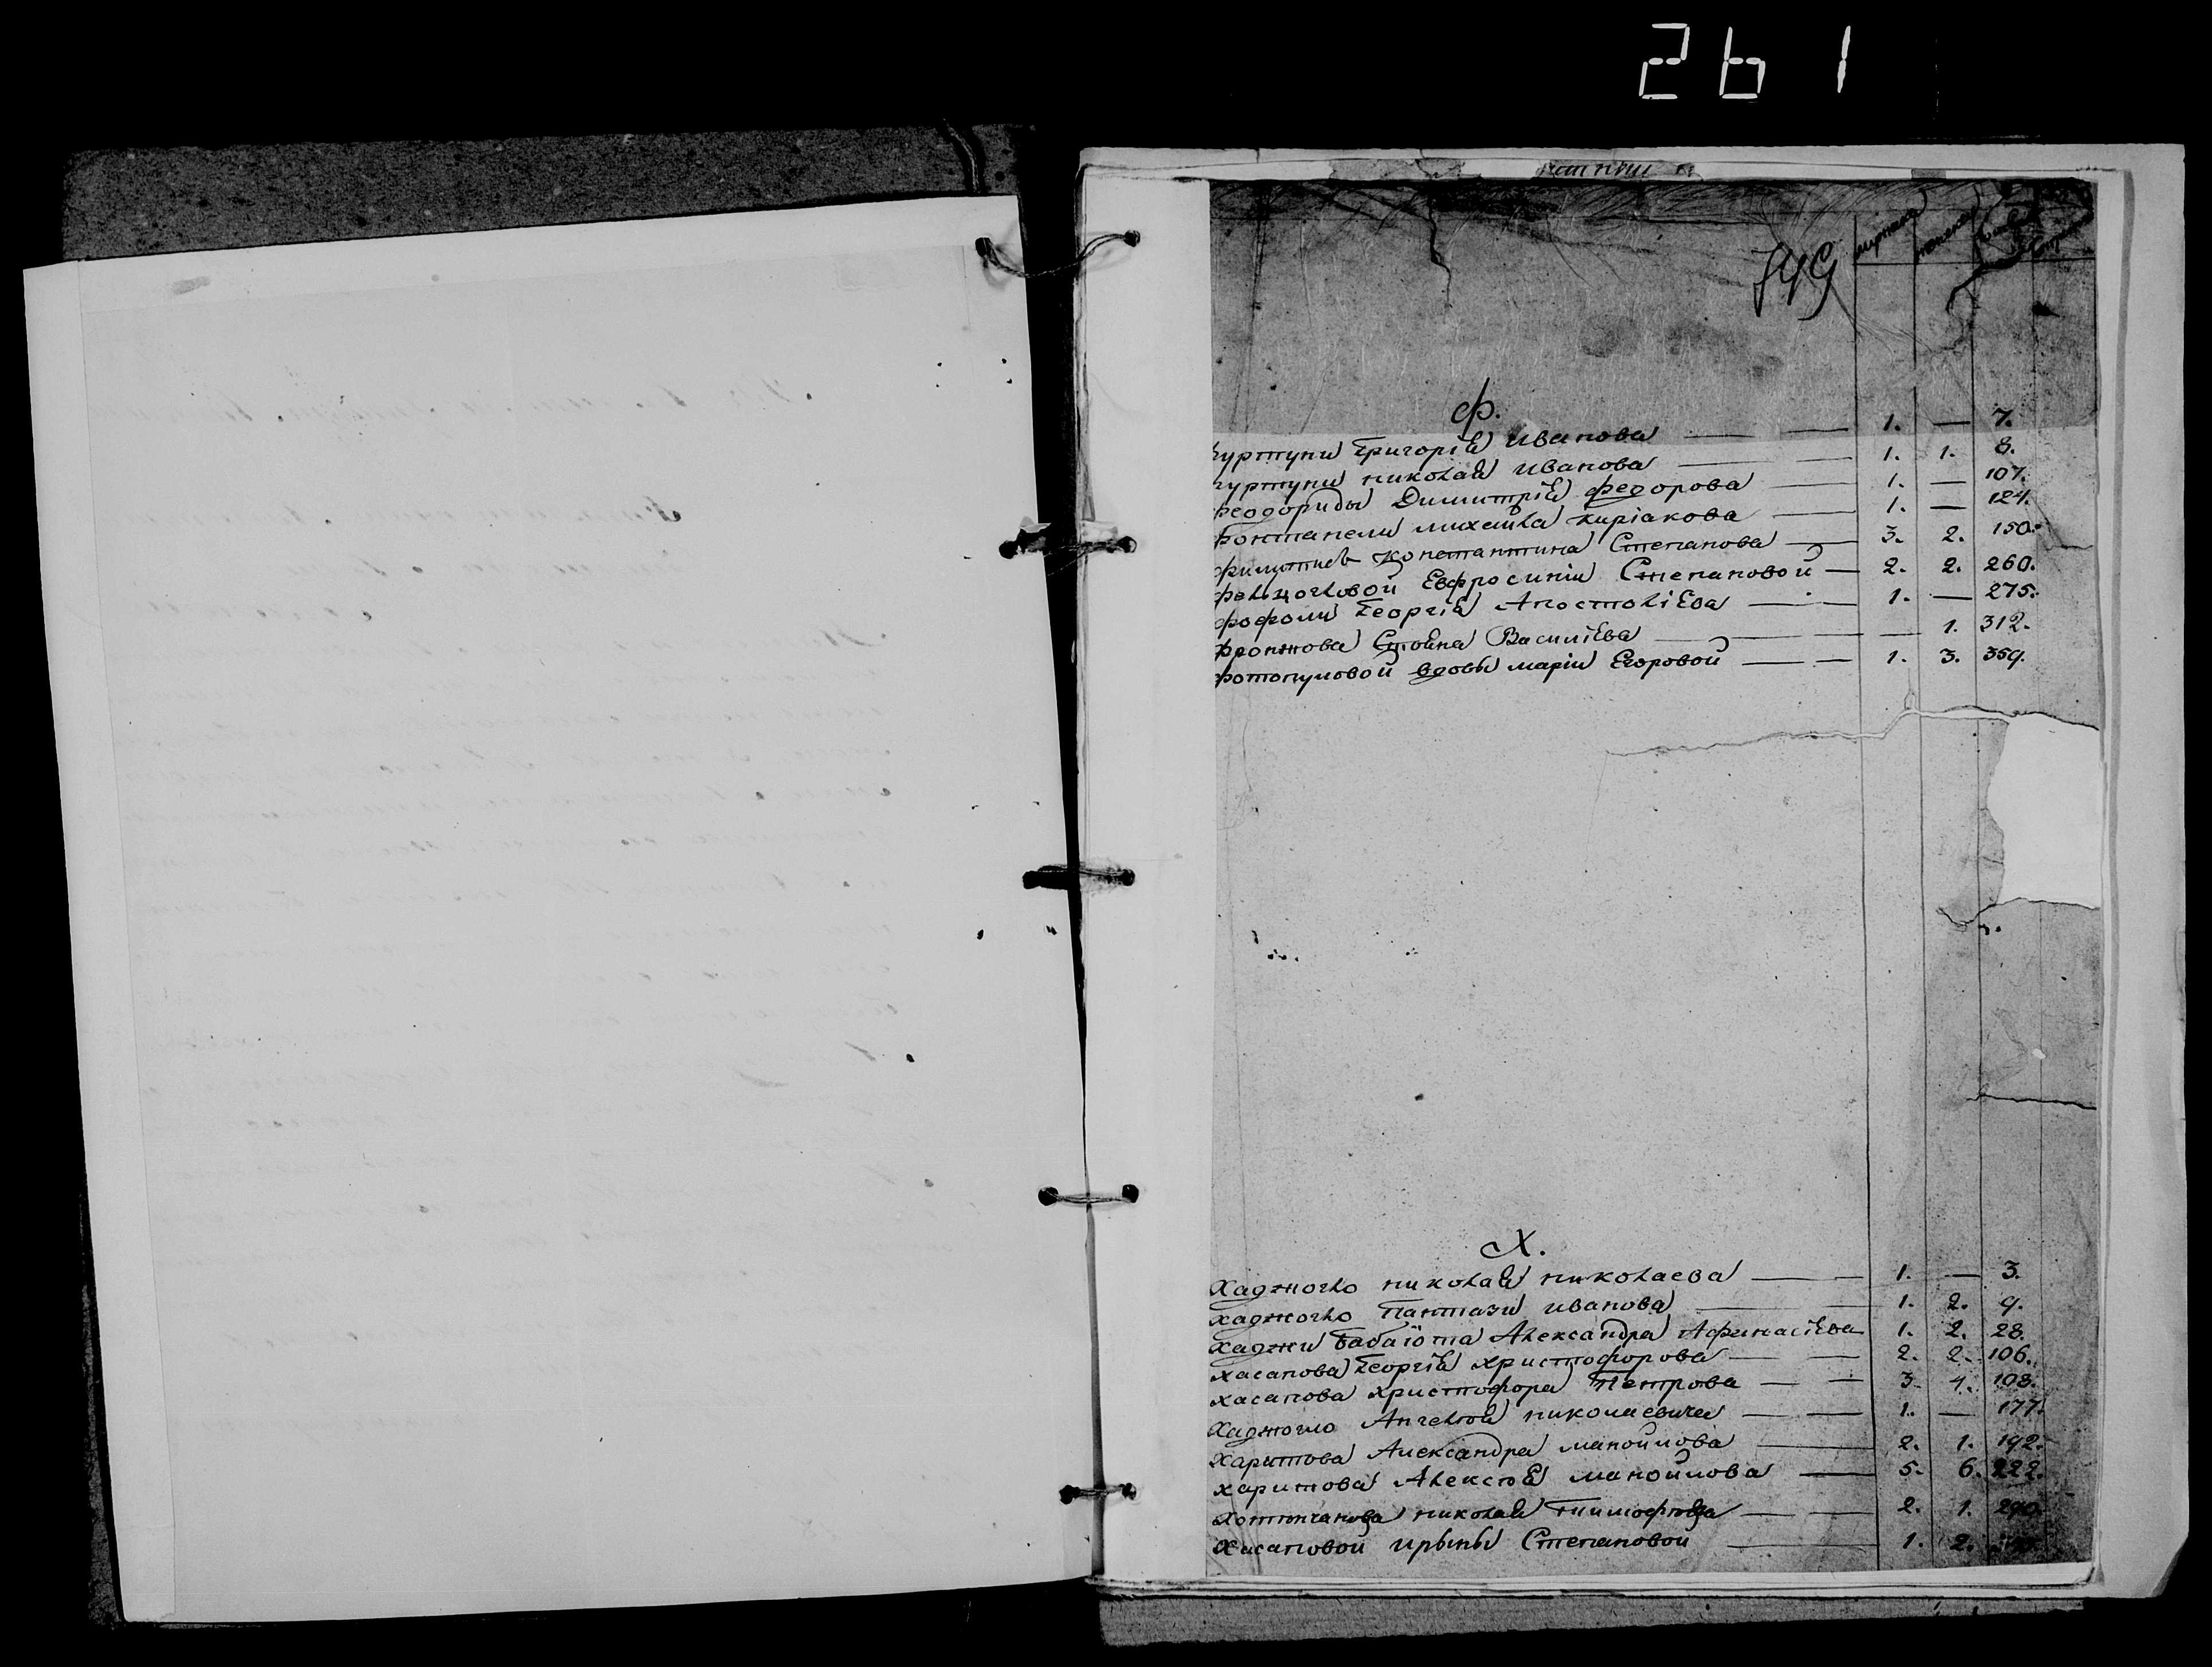 261
849
мужеска
женска
Ф.
Фуртуни Григорія Иванова — — 1. — 7.
Фуртуни Николая Иванова — 1. 1. 8.
Феодориды Димитрія Федорова — 1. — 107.
Фонтанели Михаила Киріакова — 1. — 124.
Константина Степанова — 3. 2. 150.
Евфросиніи Степановой — 2. 2. 260.
Фофоли Георгія Апостоліева — 1. — 275.
Стояна Василіева — — 1. 312.
Фотопуловой вдовы Маріи Егоровой — — 1. 3. 359.
Х.
Хаджогло Николая Николаева — — 1. — 3.
Хаджогло Пантази Иванова — — 1. 2. 9.
Хаджи Бабаіота Александра Афанасіева 1. 2. 28.
Хасапова Георгія Христофорова — — 2. 2. 106.
Хасапова Христофора Петрова — — 3. 4. 108.
Хаджогло Николаевича — — 1. — 177.
Харитова Александра Манойлова — 2. 1. 192.
Харитова Алексѣя Манойлова — 5. 6. 222.
Николая Тимофѣева — — 2. 1. 290.
Хасаповой Ирыны Степановой — 1. 2.